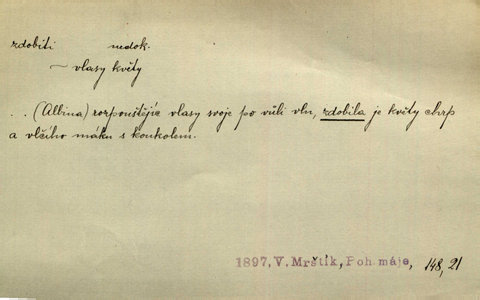 zdobiti nedok.
~ vlasy květy
. . (Albina) rozpouštějíc vlasy svoje po vůli vln, zdobila je květy chrp
a vlčího máku s koukolem.
1897, V. Mrštík, Poh. máje, 148, 21